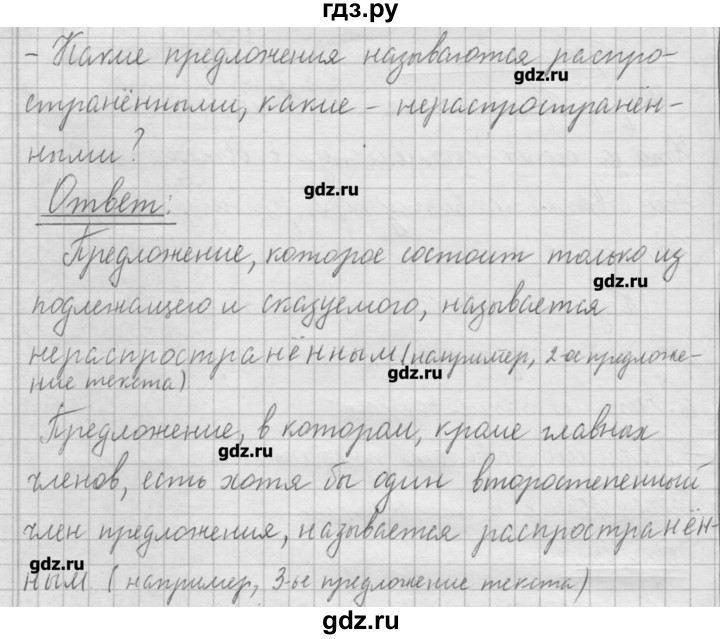 гдз.ру
- Какие предложения называются распро-
gdz.ru
странёнными, какие - нераспространён-
ными?
gdz.ru
Ответ:
Предложение, которое состоит только из
gdz.ru
подлежащего и сказуемого, называется
нераспространённым (например, 2-ое предложе-
gdz.ru
ние текста)
Предложение, в котором, кроме главных
gdz.ru
членов, есть хотя бы один второстепенный
член предложения, называется распространён-
gdz.ru
ным. (например, 3-ье предложение текста)
gdz.ru